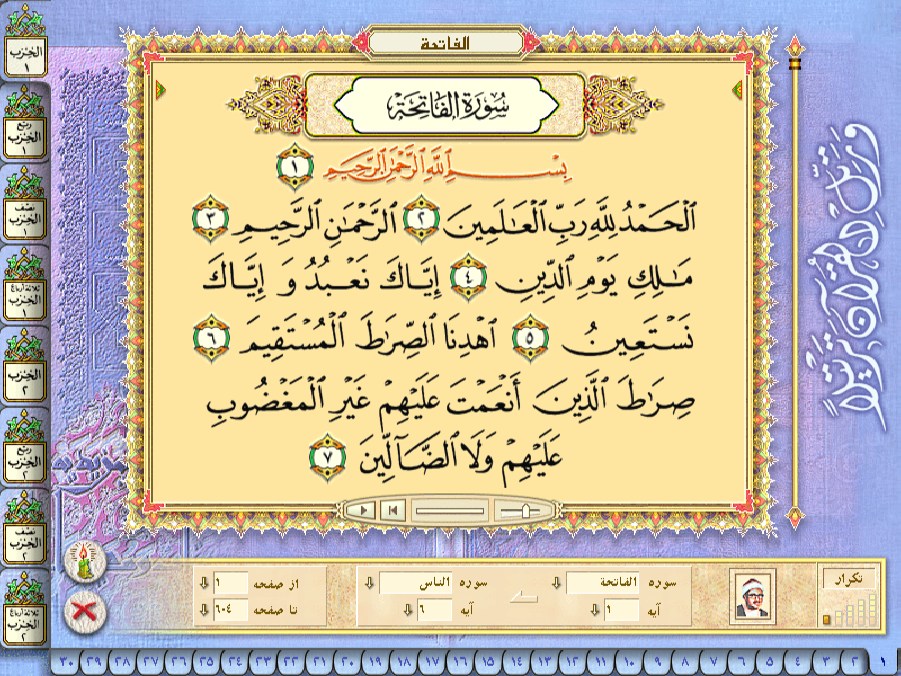 الفاتحة
سُورَةُ الْفَاتِحَةِ
بِسْمِ اللَّهِ الرَّحْمَٰنِ الرَّحِيمِ ١
الْحَمْدُ لِلَّهِ رَبِّ الْعَالَمِينَ ٢ الرَّحْمَٰنِ الرَّحِيمِ ٣
مَالِكِ يَوْمِ الدِّينِ ٤ إِيَّاكَ نَعْبُدُ وَ إِيَّاكَ
نَسْتَعِينُ ٥ اهْدِنَا الصِّرَاطَ الْمُسْتَقِيمَ ٦
صِرَاطَ الَّذِينَ أَنْعَمْتَ عَلَيْهِمْ غَيْرِ الْمَغْضُوبِ
عَلَيْهِمْ وَلَا الضَّالِّينَ ٧
ورتل القرآن ترتيلاً
الحزب ١
ربع الحزب ١
نصف الحزب ١
ثلاثة أرباع الحزب ١
الحزب ٢
ربع الحزب ٢
نصف الحزب ٢
ثلاثة أرباع الحزب ٢
تكرار
سوره الفاتحة
آيه ١
سوره الناس
آيه ٦
از صفحه ١
تا صفحه ٦٠٤
١ ٢ ٣ ٤ ٥ ٦ ٧ ٨ ٩ ١٠ ١١ ١٢ ١٣ ١٤ ١٥ ١٦ ١٧ ١٨ ١٩ ٢٠ ٢١ ٢٢ ٢٣ ٢٤ ٢٥ ٢٦ ٢٧ ٢٨ ٢٩ ٣٠